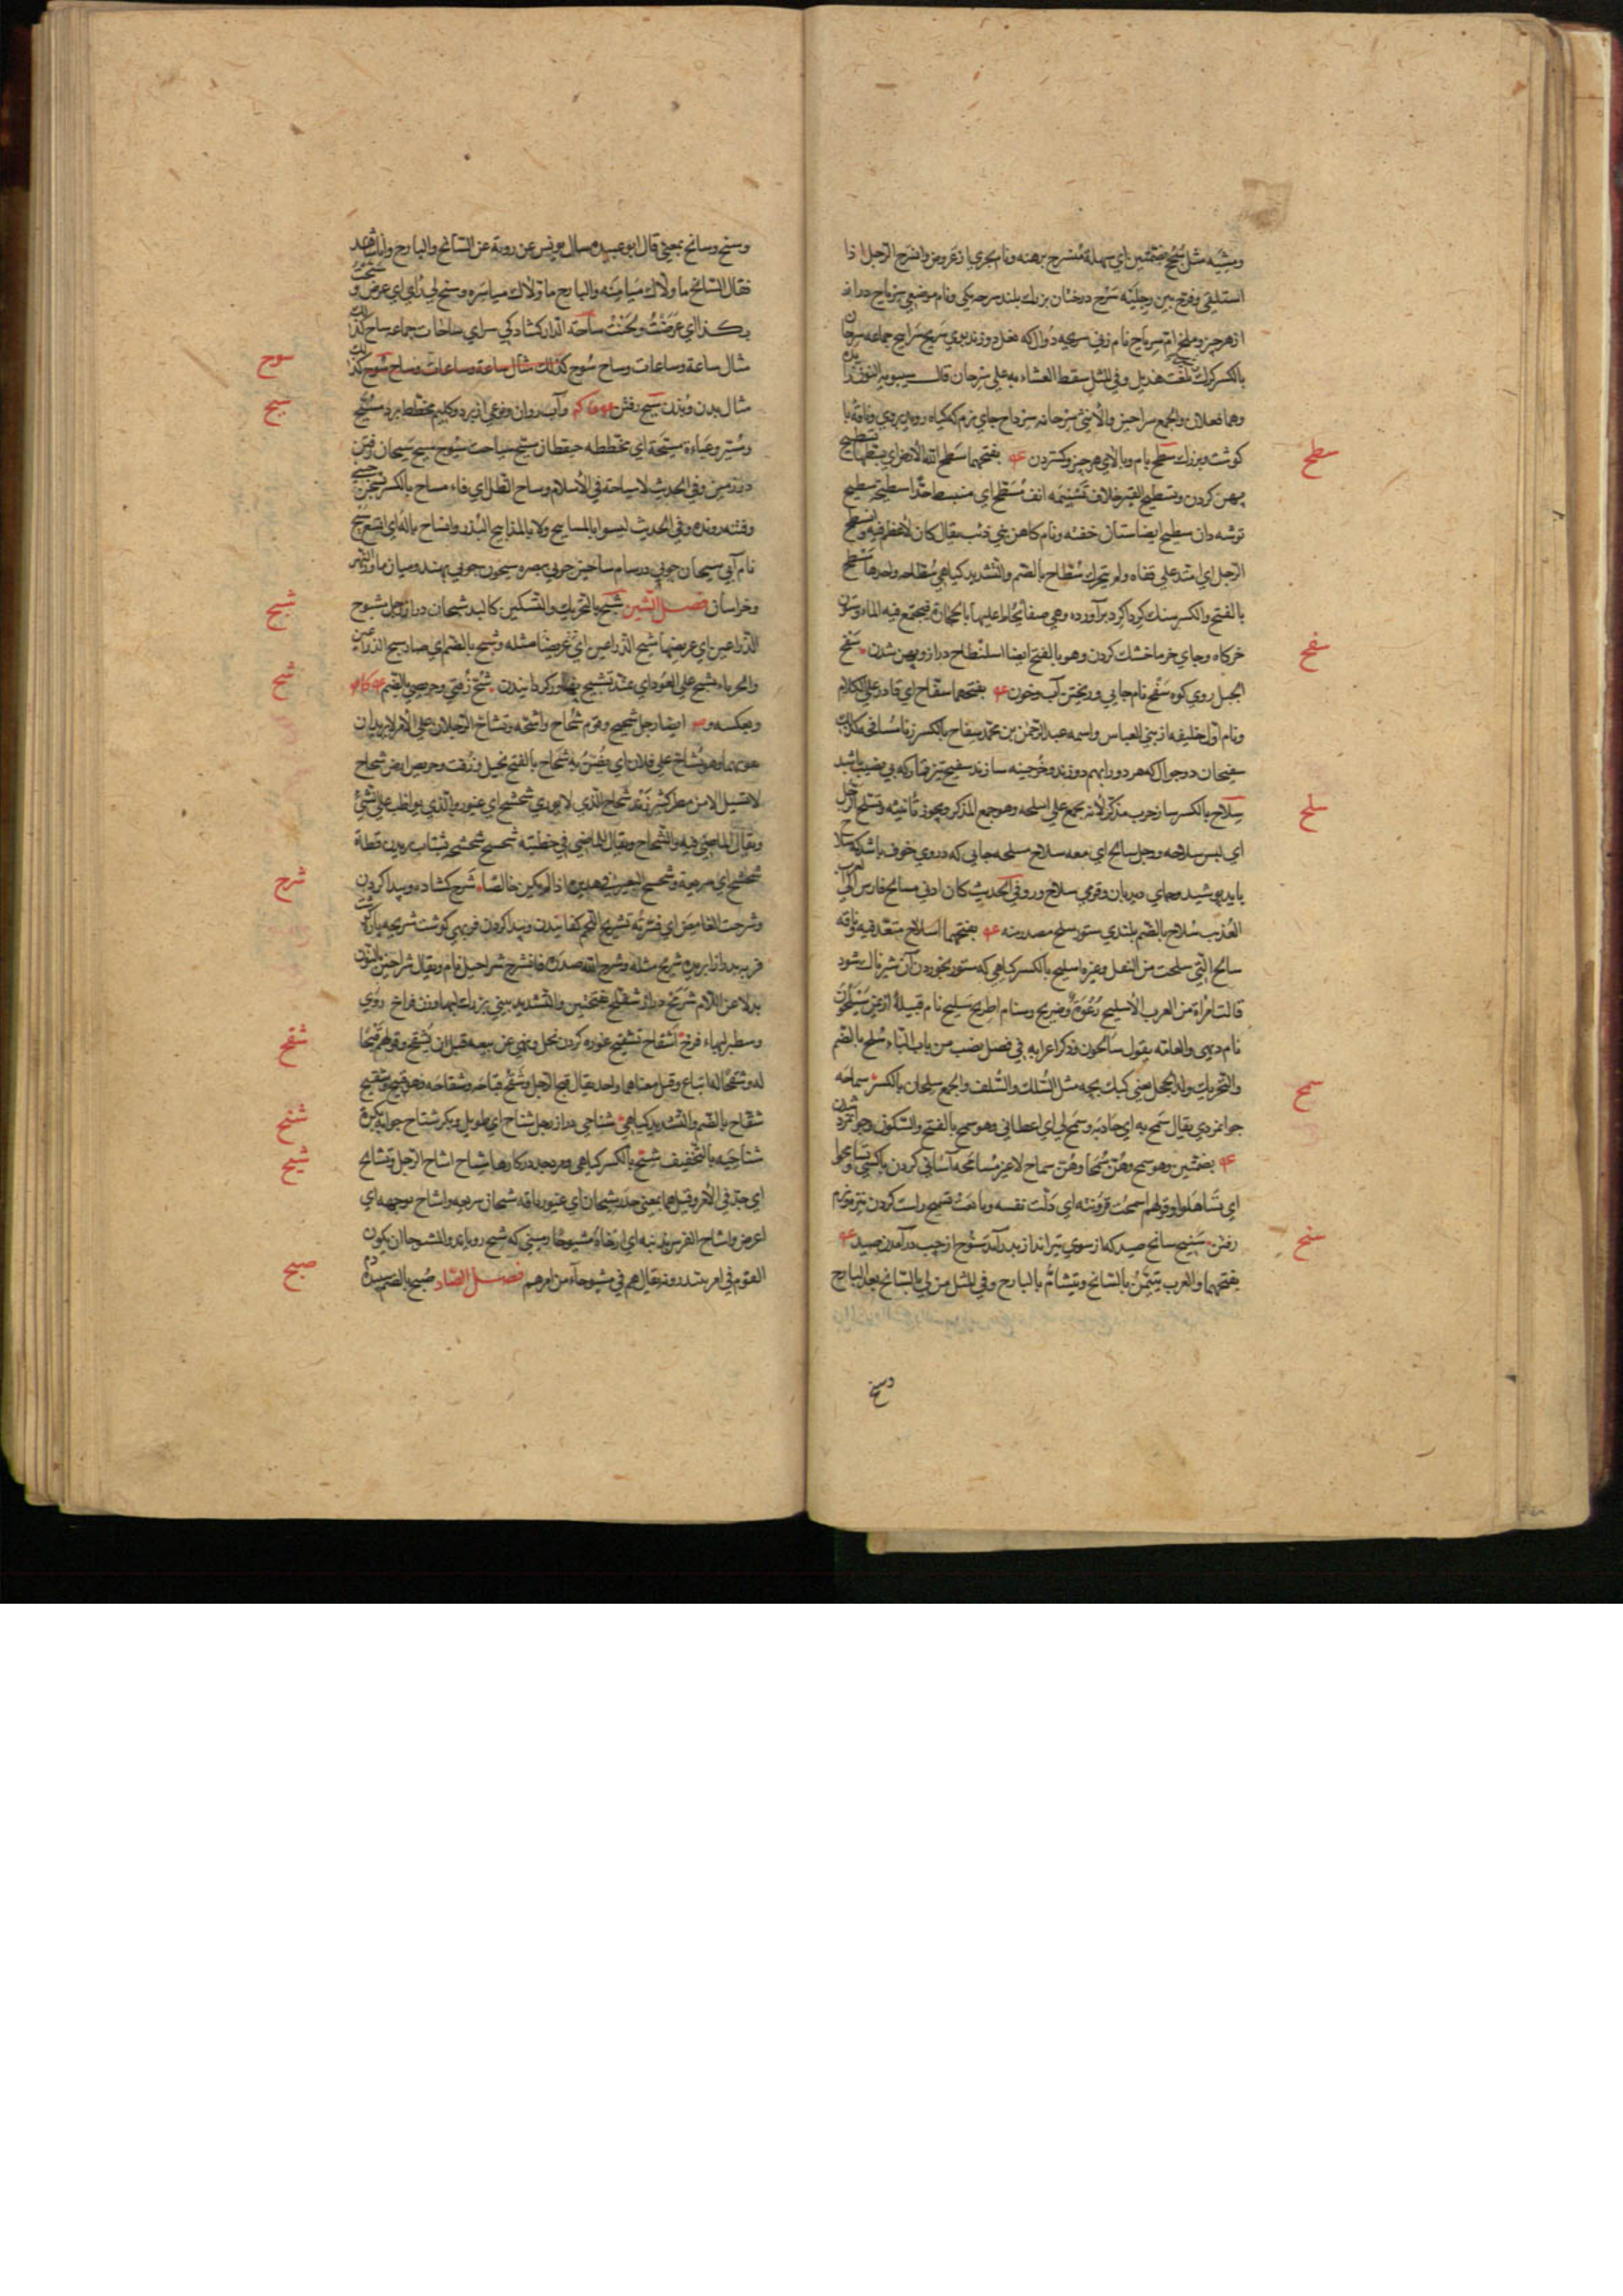 ومشیه مثل سُجُح بضمتین ای سهلة مُنسرح برهنه ونام بحری از عروض وانسرح الرجل اذا
استلقی وفرّج بین رجلیه سَرْح درختان بزرك بلند سرحه یکی ونام موضعی سِرْیاح دراز
از هر چیز وملخ ام سِریاح نام زنی سریحه دوال که نعل دوزند بوی سریح سَرایح جماعه سِرحان
بالکسر کرك بلغت هذیل وفی المثل سقط العشاء به علی سِرحان قال سیبویه النون زائده
وهو فعلان والجمع سراحین والانثی سرحانه سِرداح جای نرم که کیاه روید بروی وناقهٔ با
کوشت وبزرك سطح بام وبالای هر چیز وکستردن بفتحهما سَطَح الله الارض ای بسطها تسطیح
پهن کردن وتسطیح القبر خلاف تَسْنیمه انف مُسَطَّح ای منبسط جدّا سطیحة سطیح
توشه دان سطیح ایضا ستان خفته ونام کاهن بنی ذئب یقال کان لا عظم فیه وانسطح
الرجل ای امتد علی قفاه ولم یتحرك سُطّاح بالضم والتشدید کیاهی سُطّاحه واحدها مسطح
بالفتح والکسر سنك کرداکرد برآورده وهی صفاة یُحاط علیها بالحجارة فیجتمع فیه الماء وستون
خرکاه وجای خرما خشك کردن وهو بالفتح ایضا اسلنطاح دراز وپهن شدن سَفح
الجبل روی کوه سَفْح نام جایی وریختن آب وخون بفتحهما سفّاح ای قادر علی الکلام
ونام اول خلیفه از بنی العباس واسمه عبد الرحمن بن محمد سِفاح بالکسر زنا مُسافحه کذلك
سفیحان دو جوال که هر دو را بهم دوزند وخُرجینه سازند سفیح تیر قمار که بی نصیب باشد
سِلاح بالکسر ساز حرب مذکّر لانه یجمع علی اسلحه وهو جمع المذکر ویجوز تأنیثه وتسلّح الرجل
ای لبس سلاحه ورجل سالح ای معه سلاح مسلحه جایی که دروی خوف باشد که سلاح
باید پوشید وجای دیدبان وقومی سلاح ور وفی الحدیث کان ادنی مسالح فارس الی العرب
العُذیب سُلاح بالضم پلیدی ستور سلح مصدر منه بفتحهما اسلاح متعدّ فیه وناقه
سالح التی سلحت من البقل وغیره اسلیح بالکسر کیاهی که ستور بخوردن آن شیرناك شود
قالت امراة من العرب الاسلیح رُغْوَةٌ وصریح وسنام اطریح سَلیح نام قبیلهٔ از یمن سَیْلَحُون
نام دیهی والعامه یقول سالحون وذکر اعرابه فی فصل نصب من باب الباء سُلَح بالضم
والتحریك ولد الحجل یعنی کبك بچه مثل السُّلك والسُّلف والجمع سِلحان بالکسر سماحه
جوانمردی یقال سَمح به ای جاد به وسَمَح لی ای اعطانی وهو سمح بالفتح والسکون وجوانمرد شدن
بضمتین وهو سمح وهُنّ سُمَحا وهُنّ سماح لا غیر مُسامَحه آسانی کردن باکسی وتسامحوا
ای تَساهَلوا وقولهم اسمحت قرونته ای ذلّت نفسه وتابعت تسمیح راست کردن نیزه ونرم
رفتن سَنیح سانح صید که از سوی تیرانداز بدر آمد سُنُوح از چپ درآمدن صید
بفتحهما والعرب یتیمّن بالسانح ویتشاءم بالبارح وفی المثل من لی بالسانح بعد البارح
وسنح
سطح
سفح
سلح
سمح
سنح
وسنح وسانح بمعنی قال ابو عبیده سال یونس عن روبة عن السانح والبارح وانا شاهد
فقال السانح ما ولّاك میامنه والبارح ما ولّاك میاسره وسنح لی رأی ای عرض وسنحتُ
بکذا ای عرّضتُ ولَحَنْتُ ساحة الدار کشادکی سرای ساحات جماعه ساح کذلك
مثال ساعة وساعات وساح سُوح کذلك مثال ساعة وساعات وساح سُوح کذلك
مثال بدن وبُدْن سَیْح رفتن وآب روان ونوعی از برد وکلیم مخطط برد مُسَیَّح
ومُسَیّر وعباءة مسیّحة ای مخططه سیح سیاحت سُیوح سیح سَیَحان رفتن
در زمین وفی الحدیث لا سیاحة فی الاسلام وساح الظل ای فاء مسیاح بالکسر سخن چینی
وفتنه رونده وفی الحدیث لیسوا بالمساییح ولا بالمذاییع البُذُر وانساح باله ای اتسع سَیْح
نام آبی سیحان جویی در شام ساحین جویی ببصره سیحون جویی بهند ومیان ماوراء النهر
وخراسان فصل الشین شَبح بالتحریك والتسکین کالبد شبحان دراز رجل مشبوح
الذراعین ای عریضهما شبح الذراعین ای عریضا مثله وشبُح بالضم ای صار شبح الذراعین
والحرباء یشبح علی العود ای یمتد تشبیح پهناور کردانیدن شُحّ زُفتی وحریصی بالضم
وبعکسه ایضا رجل شحیح وقوم شحاح واشحّه وتشاحّ الرجلان علی الامر لا یریدان
یفوتهما وهو یُشاحّ علی فلان ای یضنّ به شَحاح بالفتح بخیل وزُفت وحریص ارض شحاح
لا تسیل الا من مطر کثیر زَنْد شَحاح الذی لا یوری شحشح ای غیور والذی یواظب علی الشئ
ویقال الماضی فیه والشجاع ویقال الماضی فی خطبته شحیح شحشح بشتاب پریدن قطاة
شحشح ای سریعة وشحشح البعیر فی هدیره اذا لم یکن خالصًا شَرح کشاده وپیدا کردن
وشرحت الغامض ای فسّرته تشریح اللحم کفانیدن وپیدا کردن فربهی کوشت شریحه پاره کوشت
فربه بدرازا بریده شریح مثله وشرح الله صدره فانشرح شراحیل نام ویقال شراحین بالنون
بدلا عن اللام شَرْمح دراز شفلّح بفتحتین والتشدید بینی بزرك لبها وزن فراخ روی
وسطبر لبهاء فرج اشقاح تشقیح غوره کردن نخل ونهی عن بیعه قبل ان یُشقّح وقولهم قبحًا
له وشقحًا له اتباع وقیل معناهما واحد یقال قبُح الرجل وشقُح قباحة وشقاحه وهو قبیح شقیح
شقّاح بالضم والتشدید کیاهی شناحی دراز رجل شناح ای طویل وبکر شناح جوانه بکرة
شناحیه بالتخفیف شیح بالکسر کیاهی ومرد بجد در کارها شیاح اشاح الرجل وشایح
ای جدّ فی الامر وقیل هما بمعنی حذر شیحان ای غیور ناقه شیحانة سریعه واشاح بوجهه ای
اعرض واشاح الفرس بذنبه ای ارخاهُ مشیوحا زمینی که شیح رویاند والمشیوحا ان یکون
القوم فی امر یبتدرونه یقال هم فی مشیوحاء من امرهم فصل الصاد صُبح بالضم سپیده دم
سوح
سیح
شبح
شح
شرح
شقح
شنح
شیح
صبح